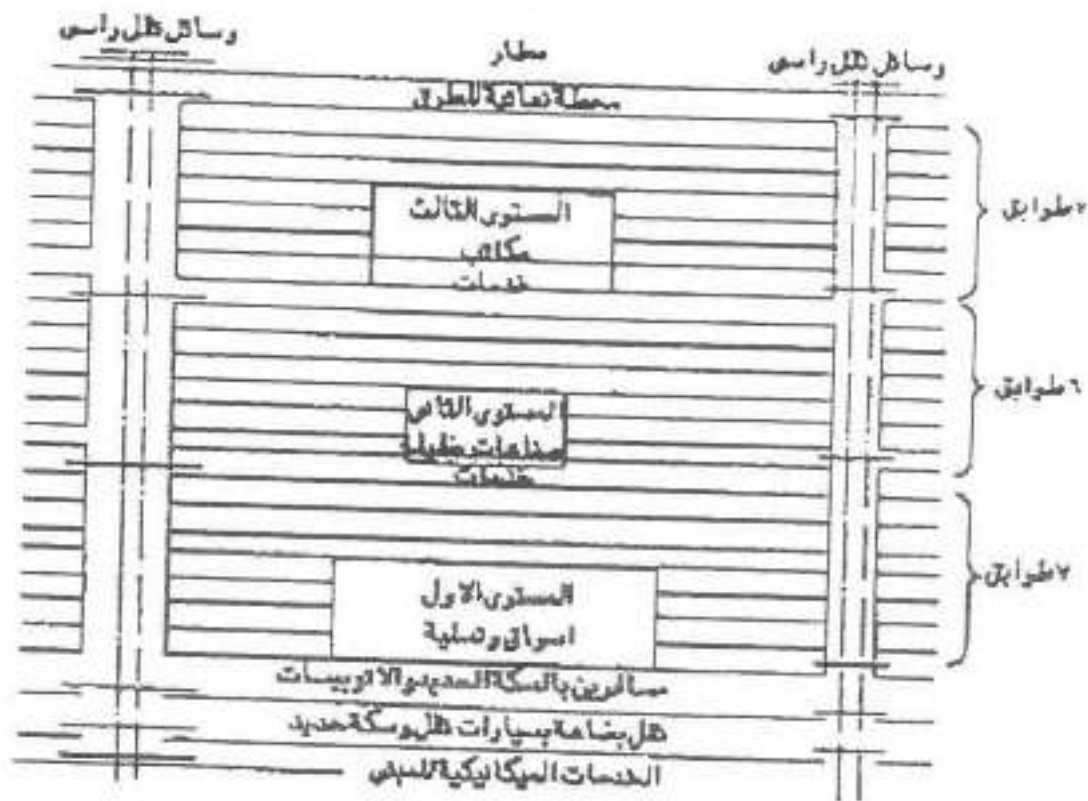 وسائل نقل راسى
مطار
وسائل نقل راسى
محطة نهائية للطرق
المستوى الثالث
مكاتب
خدمات
٧ طوابق
المستوى الثانى
صناعات خفيفة
خدمات
٦ طوابق
المستوى الاول
اسواق وتسلية
٧ طوابق
مسافرين بالسكة الحديد والاتوبيسات
نقل بضاعة بسيارات نقل وسكة حديد
الخدمات الميكانيكية للمبنى